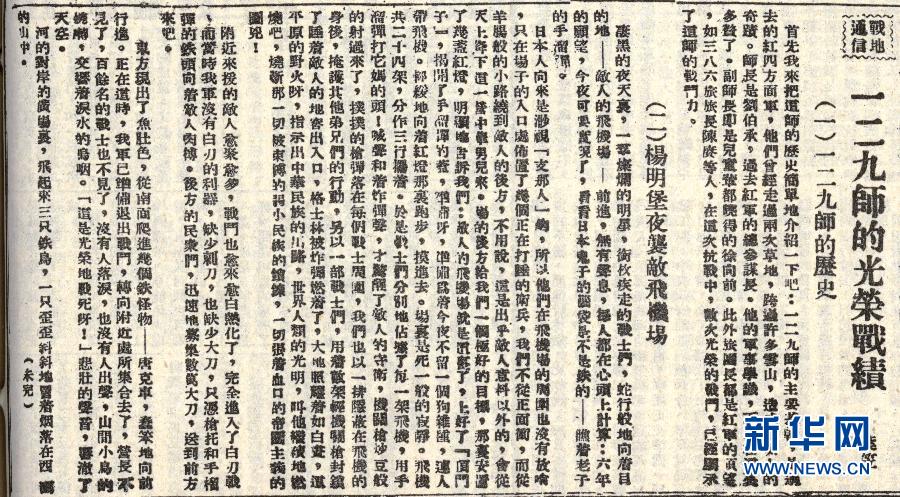 戰地
通信
一二九師的光榮戰績
(一)一二九師的歷史
首先我來把這師的歷史簡單地介紹一下吧:一二九師的主要
去的紅四方面軍,他們曾經走過兩次草地,跨過許多雪山,造
奇蹟。師長是劉伯承,過去紅軍的總參謀長。他的軍事學識,
多贅了。副師長即是兒童輩都曉得的徐向前。此外旅團長都是紅軍的
,如三八六旅旅長陳賡等人,在這次抗戰中,數次光榮的戰鬥,已經顯示
了這師的戰鬥力。
(二)楊明堡夜襲敵飛機場
漆黑的夜天裏,一羣燦爛的明星,銜枚疾走的戰士們,蛇行般地向着目
的地——敵人的飛機場——前進,無有聲息,每人都在心頭上計算:六年
的願望,今夜可要實現了,看看日本鬼子的腦袋是不是鉄的——瞧着老子
的手溜彈。
日本人向來是渺視「支那人」的,所以他們在飛機場的周圍也沒有放哨
,只在場子的入口處佈置了幾個正在打睡的衛兵,我們不從正面衝,而從
羊腸般的小路繞到敵人的後方,不用說,這是出乎敵人意料以外的,會從
天上降下這一營中華男兒來。場的後方給我們一個極好的目標,那裏安置
了幾盞紅燈,明顯地告訴我們:敵人的飛機場就是這裏了,上好了「頂門
子」,揭開了手溜彈的蓋,準備好呀,準備爲着今夜不留一個狗雜種,連人
帶飛機。輕輕地向着紅燈那裏跑步,摸進去。場裏是死一般的寂靜。飛機
共二十四架,分作三行擺着。於是戰士們分別地佔據了每一架飛機,用手
溜彈打它媽的頭!喊聲和着炸彈聲,才驚醒了敵人的守衛,機關槍炒豆般
的射過來了,撲撲的槍彈落在每個戰士的周圍,我們也以一排隱蔽在飛機
身後,掩護其他弟兄們的行動,另以一部戰士們,用着敵架輕機關槍封鎖
了睡着敵人的地窖出入口,格士林被炸彈燃着了,大地照耀着如白晝,這
平原的野火呀,指示出中華民族的出路,世界人類的光明,叫他繼續地燃
燒吧,燒斷那一切被束縛的弱小民族的鎖鍊,一切張着血口的帝國主義的
附近來援的敵人愈聚愈多,戰鬥也愈來愈白熱化了,完全進入了白刃戰
,而當時我軍沒有白刃的利器,缺少刺刀,也缺少大刀,只憑槍托和手榴
彈的鉄頭向着敵人肉搏。後方的民衆們,迅速地募集數萬大刀,送到前方
來吧。
東方現出了魚肚色,從南面爬進幾個鉄怪物——唐克車,蠢笨地向前
行進。正在這時,我軍已準備退出戰鬥,轉向附近處所集合去了,營長不
見了,百餘名的戰士也不見了,沒有人落淚,也沒有人出聲,山間小鳥的
,交響着淚水的嗚咽。「這是光榮地戰死呀!」悲壯的聲音,響澈了
天空。
河的對岸的廣場裏,飛起來三只鉄鳥,一只歪歪斜斜地冒着烟落在西
的山中。
(未完)
新华网
WWW.NEWS.CN